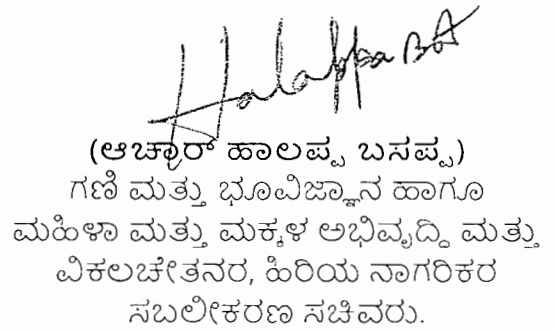 Halappa BA
(ಆಚ್ಛಾರ್ ಹಾಲಪ್ಪ ಬಸಪ್ಪ)
ಗಣಿ ಮತ್ತು ಭೂವಿಜ್ಞಾನ ಹಾಗೂ
ಮಹಿಳಾ ಮತ್ತು ಮಕ್ಕಳ ಅಭಿವೃದ್ಧಿ ಮತ್ತು
ವಿಕಲಚೇತನರ, ಹಿರಿಯ ನಾಗರಿಕರ
ಸಬಲೀಕರಣ ಸಚಿವರು.